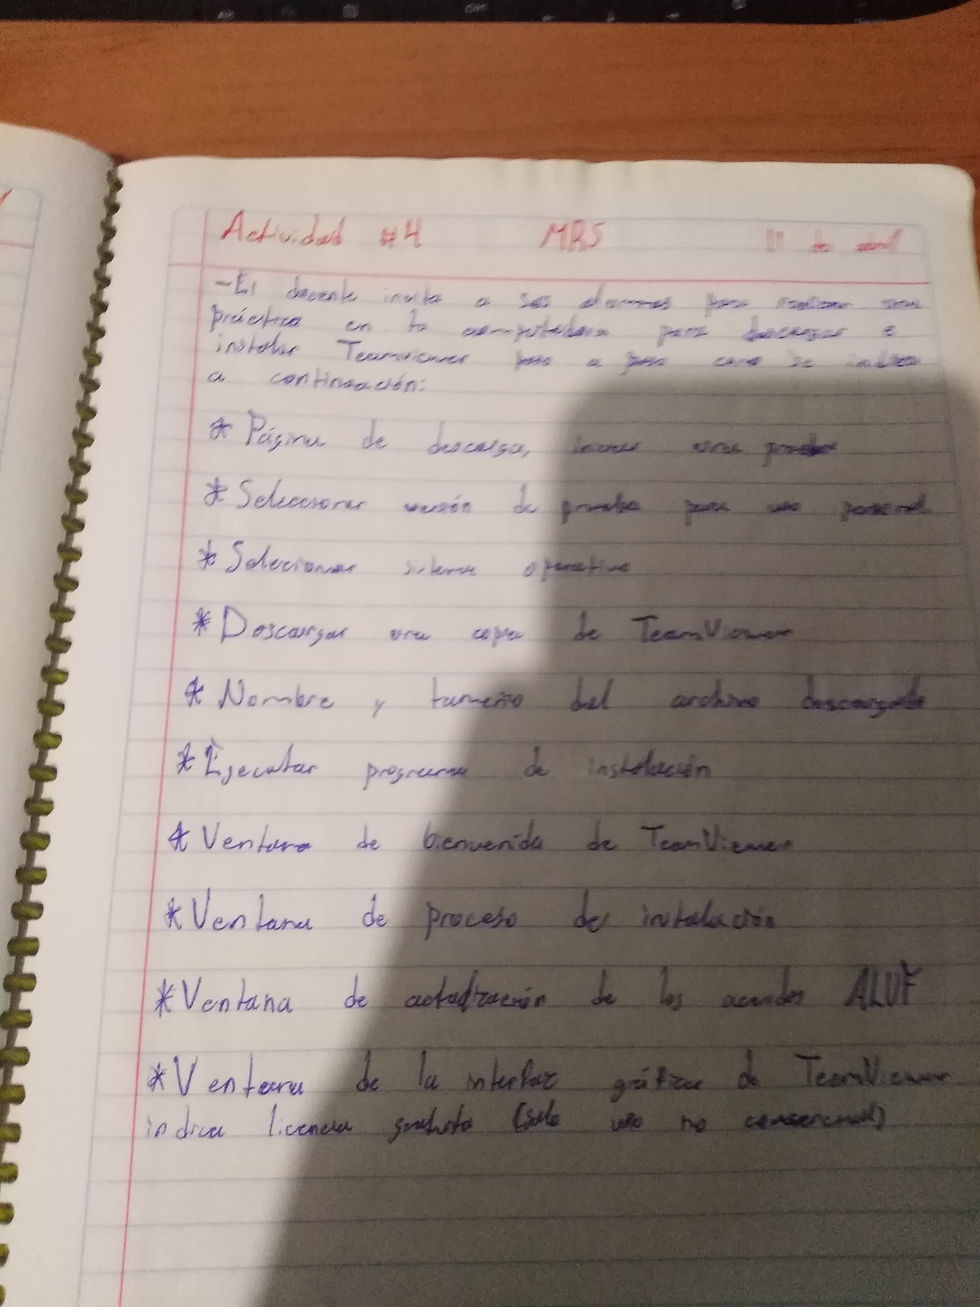 Actividad #4 MRS 11 de abril
-El docente invita a sus alumnos para realizar una
práctica en la computadora para descargar e
instalar Teamviewer paso a paso como se indica
a continuación:
* Página de descarga,
* Seleccionar versión de prueba para uso personal.
* Selecionar sistema operativo
* Descargar una copia de TeamViewer
* Nombre y tamaño del archivo descargado
* Ejecutar programa de instalación
* Ventana de bienvenida de TeamViewer
* Ventana de proceso de instalación
* Ventana de actualización de los acuerdos ALUF
* Ventana de la interfaz gráfica de TeamViewer
indica licencia gratuita (solo uso no comercial)